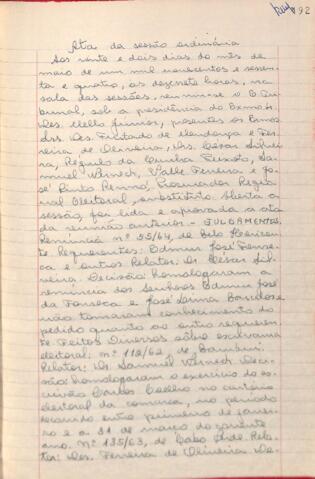 92
Ata da sessão ordinária
Aos vinte e dois dias do mês de
maio de um mil novecentos e sessen-
ta e quatro, às dezesete horas, na
sala das sessões, reuniu-se o Tri-
bunal, sob a presidência do Exmo. Sr.
Des. Mello Júnior, presentes os Exmos.
Srs. Des. Furtado de Mendonça e Fer-
reira de Oliveira, Drs. César Silvei-
ra, Régulo da Cunha Peixoto, Sa-
muel Werneck, Valle Ferreira e Jo-
sé Pinto Renno, Procurador Regio-
nal Eleitoral, substituto. Aberta a
sessão, foi lida e aprovada a ata
da reunião anterior. - JULGAMENTOS.
Renúncia nº 55/64, de Belo Horizon-
te. Requerentes: Edmur José Fonse-
ca e outros. Relator: Dr. César Sil-
veira. Decisão: homologaram a
renúncia dos Senhores Edmur José
da Fonseca e José Lanna
não tomaram conhecimento do
pedido quanto ao outro requeren-
te. Feitos Diversos sôbre escrivania
eleitoral: nº 112/62, de Bambuí.
Relator: Dr. Samuel Werneck. Deci-
são: homologaram o exercício do es-
crivão Carlos Coelho no cartório
eleitoral da comarca, no período
decorrido entre primeiro de janei-
ro e a 31 de março do corrente
ano. Nº 135/63, de Cabo Verde. Rela-
tor: Des. Ferreira de Oliveira. De-